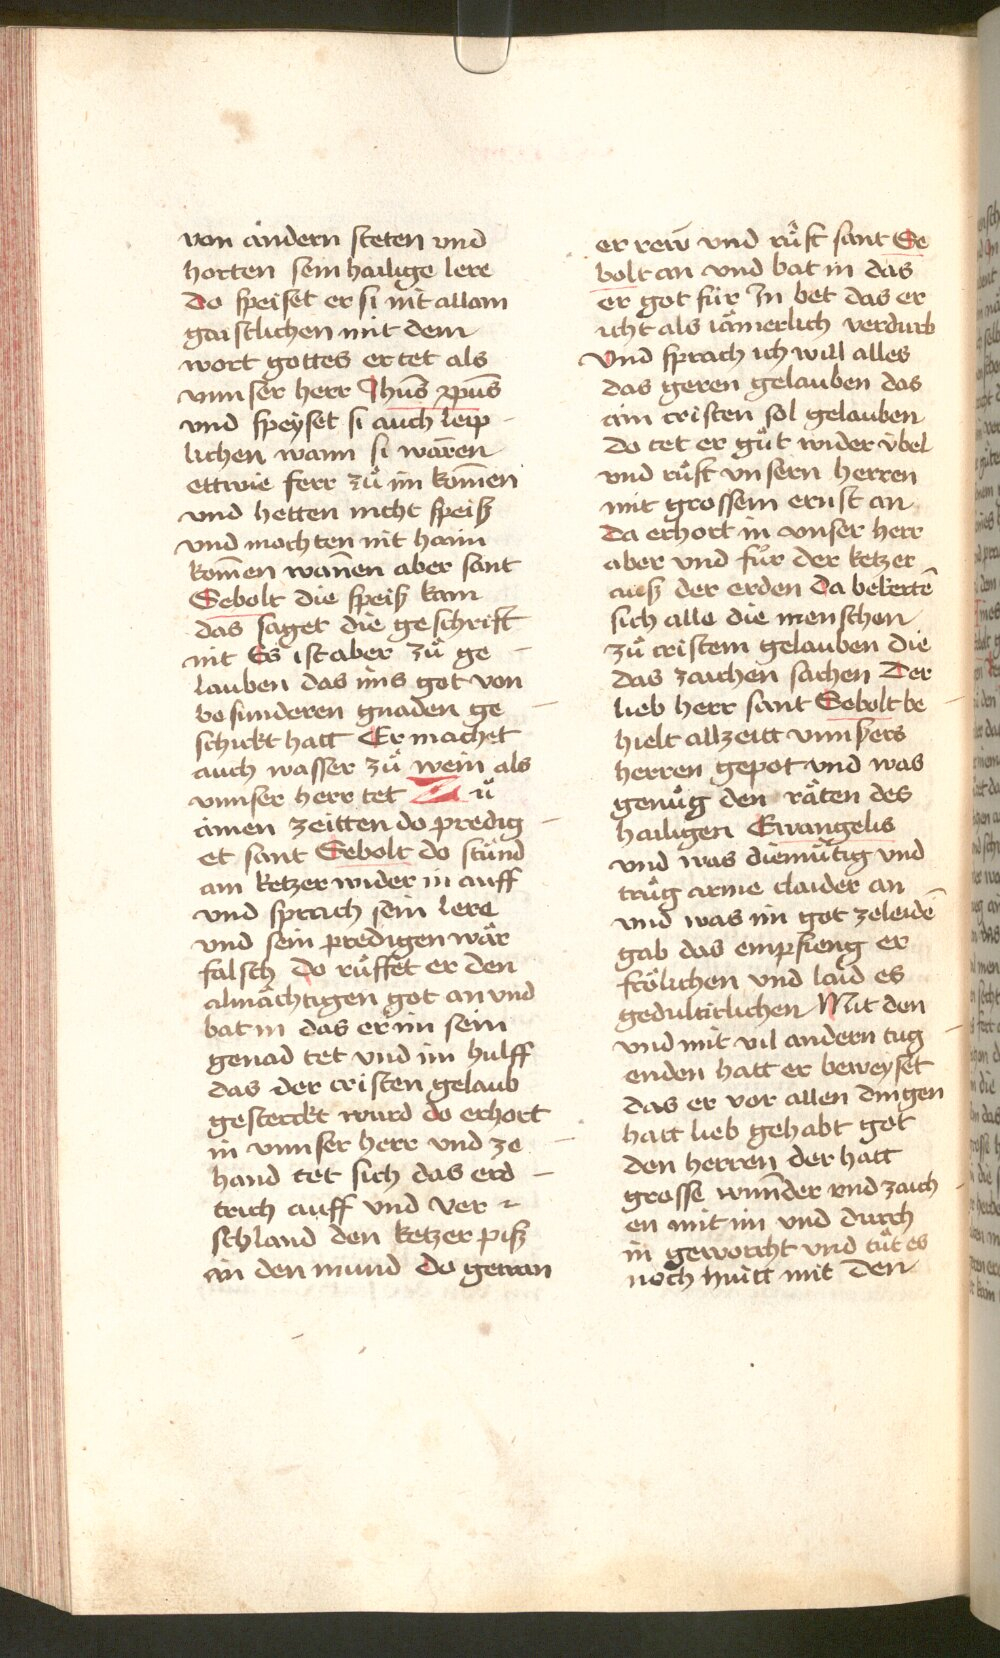 von andern steten vnd
horten sein hailige lere
do speiset er si nit allain
gaistlichen mit dem
wort gottes er tet als
vnnser herr Jhūs xp̄us
vnd speyset si auch leip
lichen wann si wāren
ettwie ferr zuͦ im kom̄en
vnd hetten nicht speiß
vnd mochten nit haim
kom̄en wan̄en aber sant
Sebolt die speiß kam
das saget die geschrift
nit Es ist aber zuͦ ge
lauben das ims got von
besunderen gnaden ge
schickt hatt Er machet
auch wasser zuͦ wein als
vnnser herr tet Zuͦ
ainen zeitten do predig
et sant Sebolt do stuͦnd
ain ketzer wider in auff
vnd sprach sein lere
vnd sein predigen waͤr
falsch do ruͦffet er den
almaͤchtigen got an vnd
bat in das er im sein
genad tet vnd im hulff
das der cristen gelaub
gesterckt wurd do erhort
in vnnser herr vnd ze
hand tet sich das erd
trich auff vnd ver
schland den ketzer piß
an den mund do gewan
er rew vnd ruͦft sant Se
bolt an vnd bat in das
er got für In bet das er
icht als iaͤmerlich verdurb
Vnd sprach ich will alles
das geren gelauben das
ain cristen sol gelauben
do tet er guͦt wider v̈bel
vnd ruͦft vnsern herren
mit grossem ernst an
Da erhort in vnser herr
aber vnd fuͦr der ketzer
auß der erden Da bekertē
sich alle die menschen
zuͦ cristem gelauben die
das zaichen sachen Der
lieb herr sant Sebolt be
hielt allzeitt vnnsers
herren gepot vnd was
genuͦg den räten des
hailigen Ewangelis
vnd was diemuͤtig vnd
truͦg arme claider an
vnd was im got zeleidē
gab das empfieng er
froͤlichen vnd laid es
gedultitlichen Mit den
vnd mit vil andern tug
enden hatt er beweyset
das er vor allen dingen
hatt lieb gehabt got
den herren der hatt
grosse wun̄der vnd zaich
en mit im vnd durch
in geworcht vnd tuͦt es
noch huitt mit Den